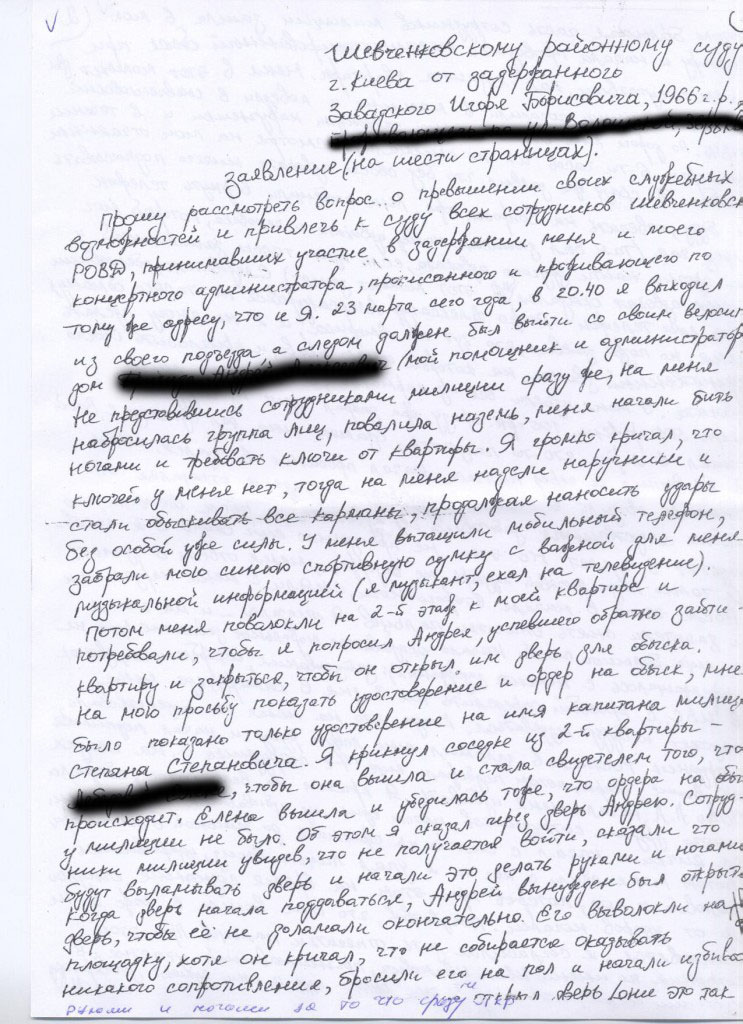 Шевченковскому районному суду
г. Киева от задержанного
Завадского Игоря Борисовича, 1966 г.р.,
заявление (на шести страницах).
Прошу рассмотреть вопрос о превышении своих служебных
возможностей и привлечь к суду всех сотрудников Шевченковск
РОВД, принимавших участие в задержании меня и моего
концертного администратора, прописанного и проживающего по
тому же адресу, что и я. 23 марта сего года, в 20.40 я выходил
из своего подъезда а следом должен был выйти со своим велоси
дом (мой помощник и администратор
Не представившись сотрудниками милиции сразу же, на меня
набросилась группа лиц, повалила наземь, меня начали бить
ногами и требовать ключи от квартиры. Я громко кричал, что
ключей у меня нет, тогда на меня надели наручники и
стали обыскивать все карманы, продолжая наносить удары
без особой уже силы. У меня вытащили мобильный телефон,
забрали мою синюю спортивную сумку с важной для меня
музыкальной информацией (я музыкант, ехал на телевидение).
Потом меня поволокли на 2-й этаж к моей квартире и
потребовали, чтобы я попросил Андрея, успевшего обратно зайти
квартиру и закрыться, чтобы он открыл им дверь для обыска.
На мою просьбу показать удостоверение и ордер на обыск, мне
было показано только удостоверение на имя капитана милици
Степана Степановича. Я крикнул соседке из 2-й квартиры –
, чтобы она вышла и стала свидетелем того, что
происходит. Елена вышла и убедилась тоже, что ордера на обы
у милиции не было. Об этом я сказал через дверь Андрею. Сотруд-
ники милиции увидев, что не получается войти, сказали что
будут выламывать дверь и начали это делать руками и ногами
Когда дверь начала поддаваться, Андрей вынужден был открыть
дверь, чтобы её не доломали окончательно. Его выволокли на
площадку, хотя он кричал, что не собирается оказывать
никакого сопротивления, бросили его на пол и начали избива
руками и ногами за то что сразу не открыл дверь (они это так